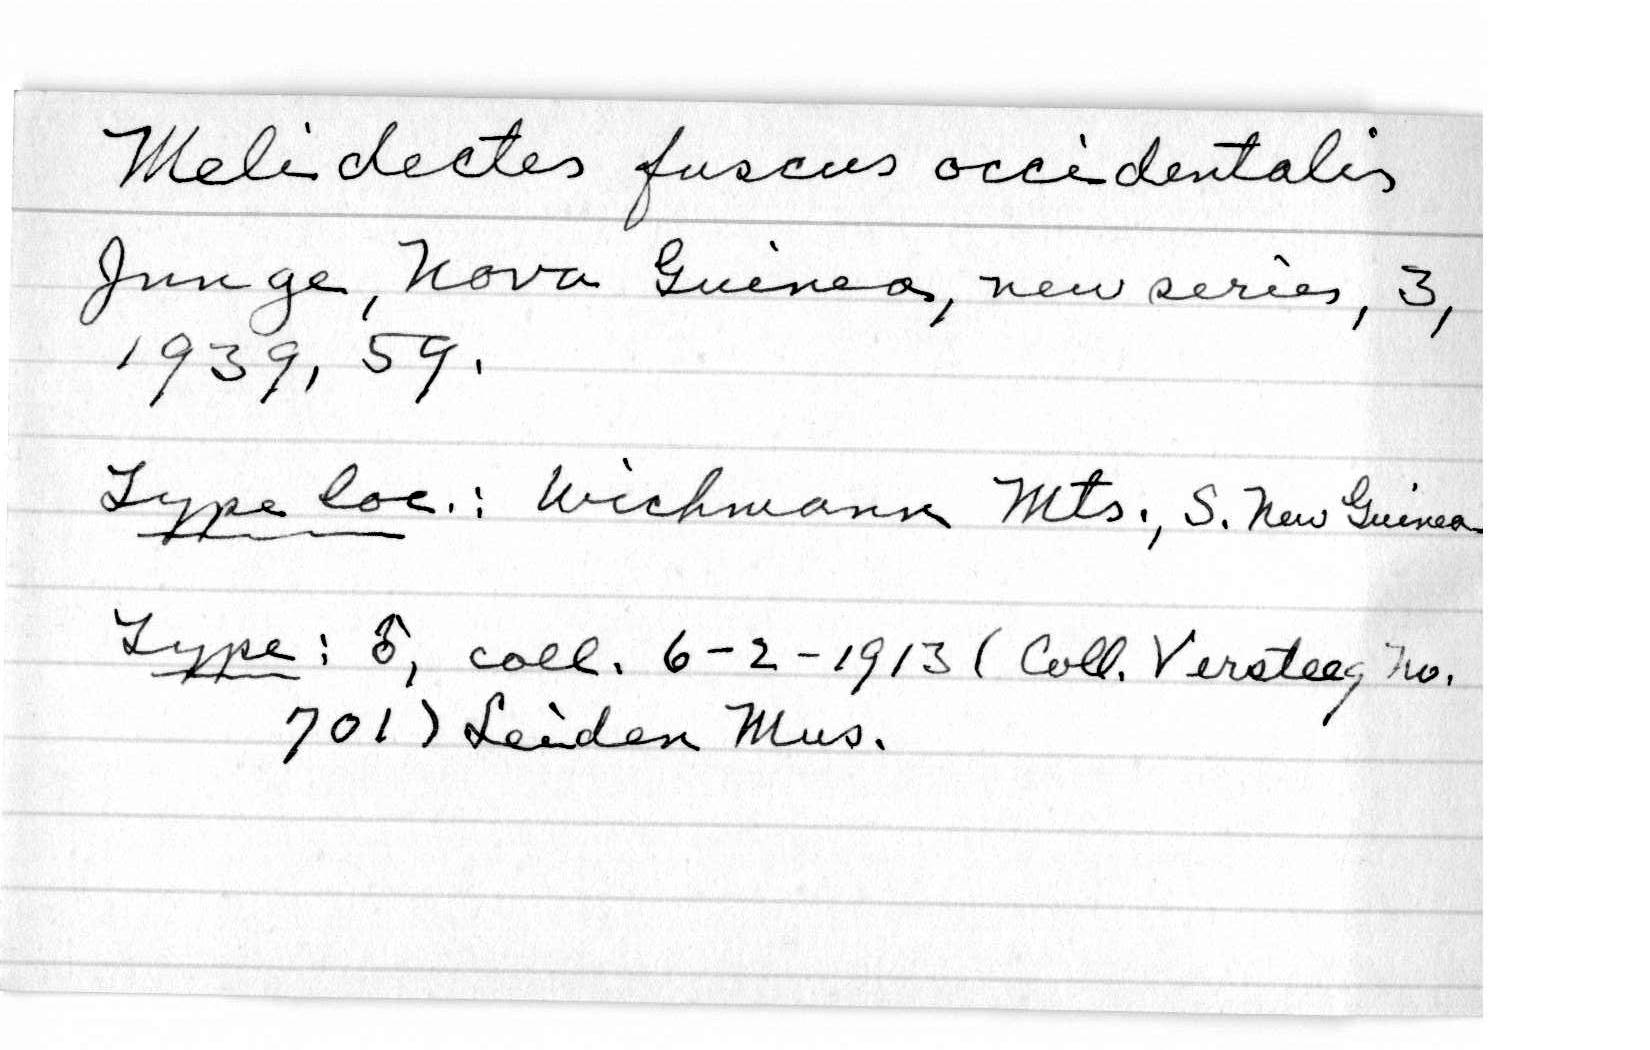 Melidectes fuscus occidentalis
Junge, Nova Guinea, new series, 3,
1939, 59.
Type loc.: Wichmann Mts., S. New Guinea
Type: ♂, coll. 6-2-1913 (Coll. Versteeg No.
701) Leiden Mus.